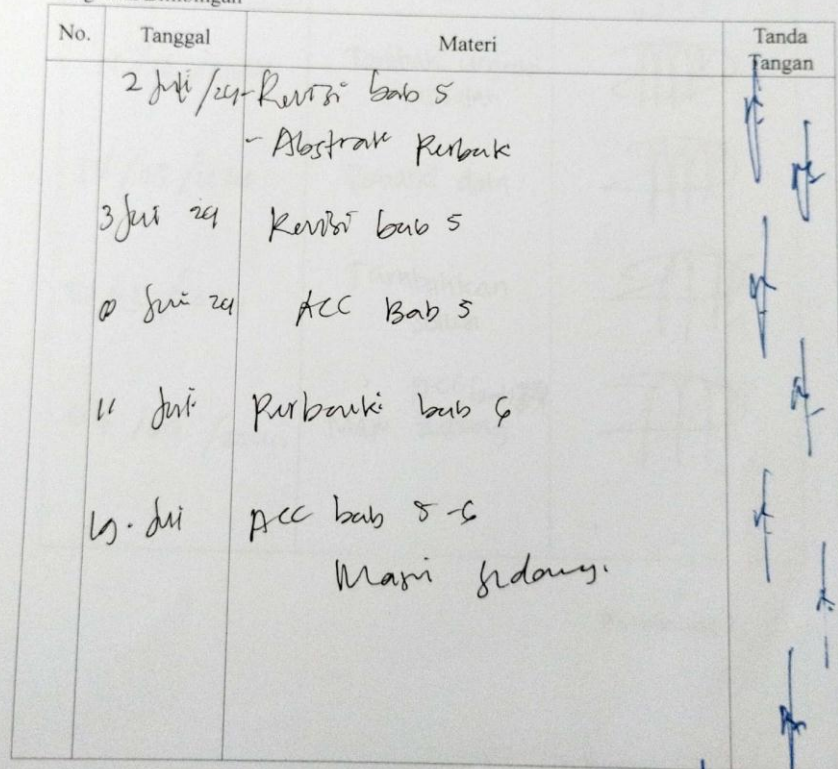 No. Tanggal Materi Tanda Tangan
2 Juli /24 - Revisi bab 5
- Abstrak Perbaik
3 Juli 24 Revisi bab 5
Juli 24 ACC Bab 5
11 Juli Perbaiki bab 6
19. Juli ACC bab 5-6
Maju sidang.